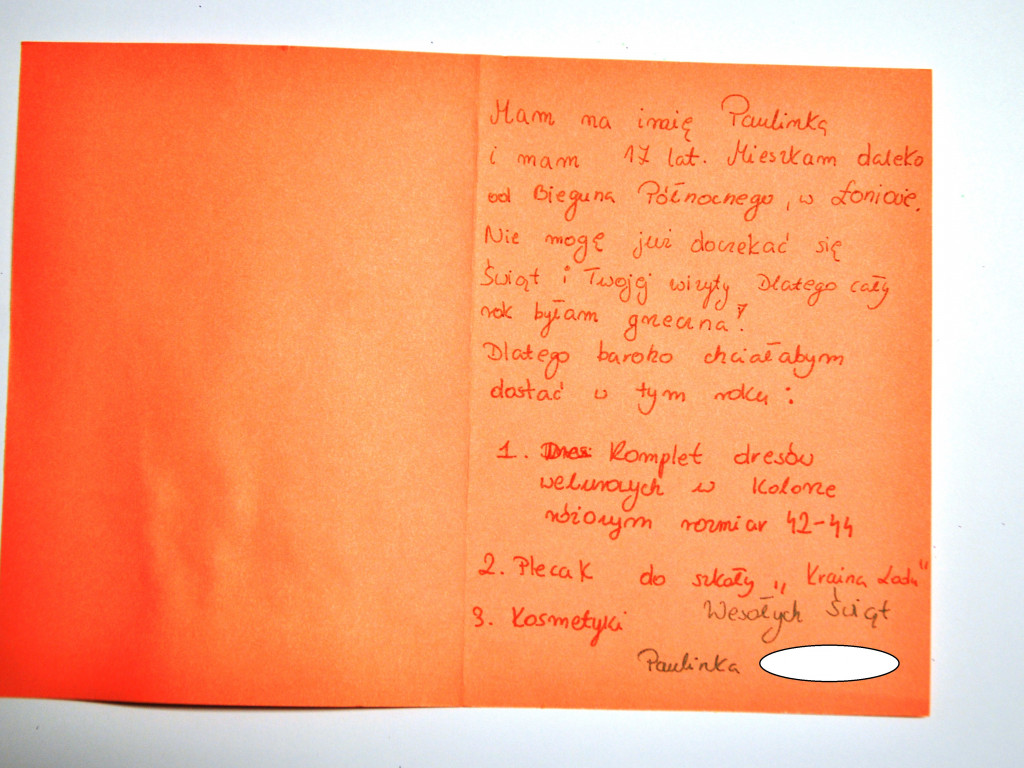 Mam na imię Paulinka
i mam 17 lat. Mieszkam daleko
od Bieguna Północnego, w Łoniowie.
Nie mogę już doczekać się
Świąt i Twojej wizyty Dlatego cały
rok byłam grzeczna!
Dlatego bardzo chciałabym
dostać w tym roku:
1. Komplet dresów
welurowych w kolorze
różowym rozmiar 42-44
2. Plecak do szkoły „Kraina Lodu"
3. Kosmetyki
Wesołych Świąt
Paulinka